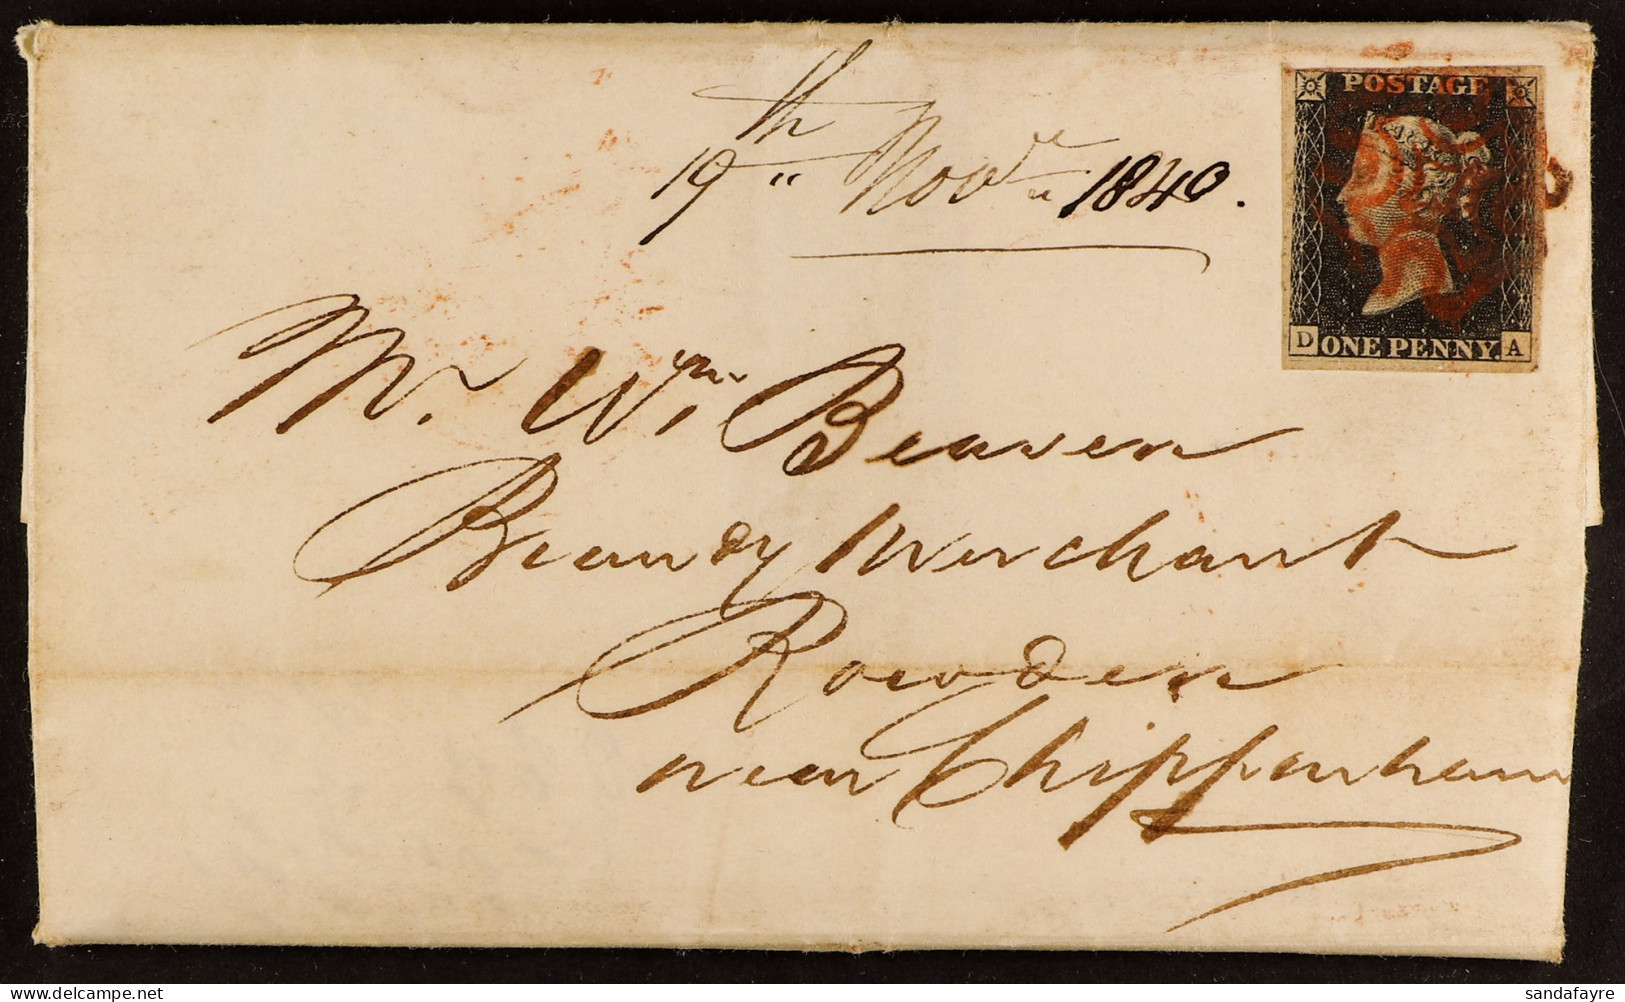 POSTAGE
D ONE PENNY. A
19th Novr 1840.
Mr. Wm. Beaven
Brandy Merchant
Rowden
near Chippenham
sandafayre